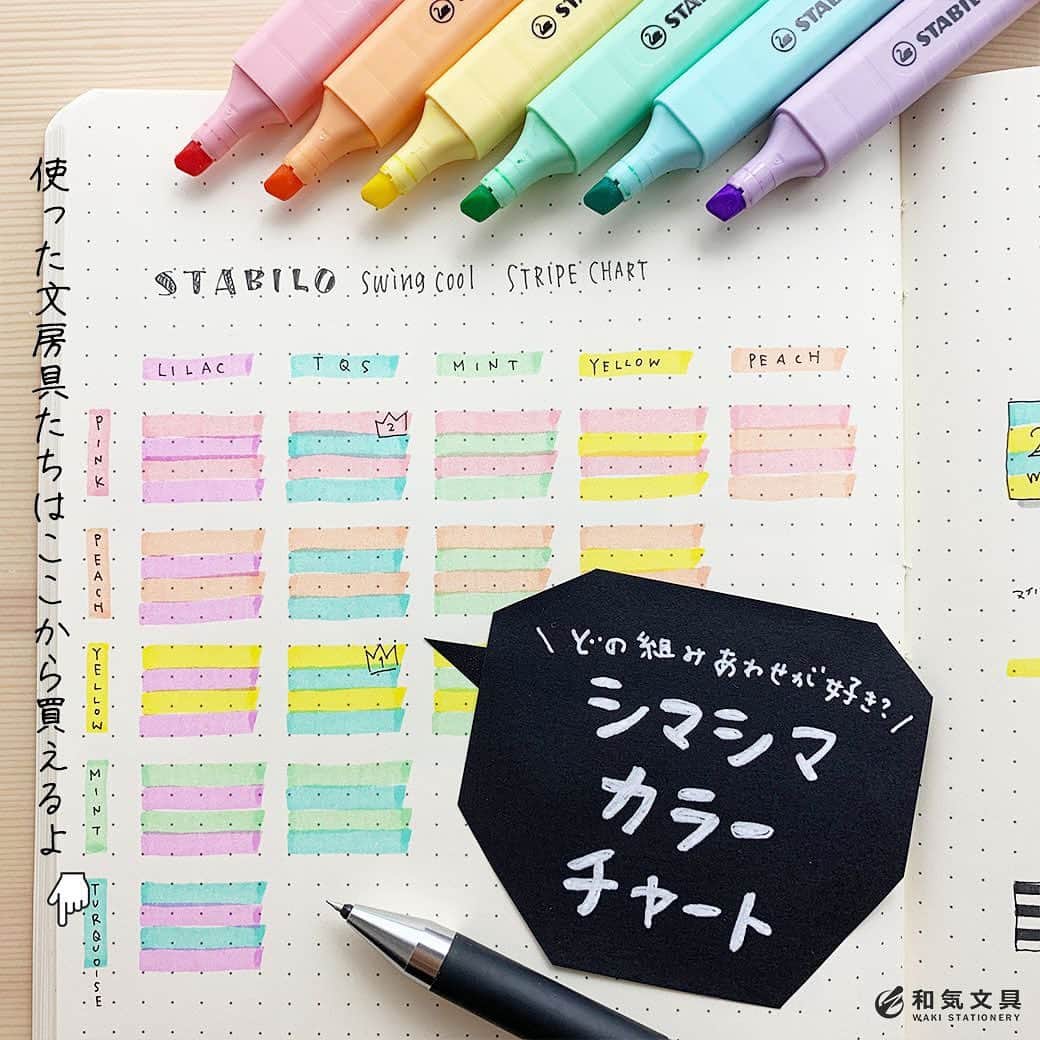 STABILO
STABI
STABILO
STABI
STABILO
使った文房具たちはここから買えるよ
STABILO Swing cool STRIPE CHART
LILAC TQS MINT YELLOW PEACH
PINK
2
PEACH
YELLOW
1
MINT
TURQUOISE
\ どの組みあわせが好き? /
シマシマ
カラー
チャート
2
マイ
和気文具
WAKI STATIONERY